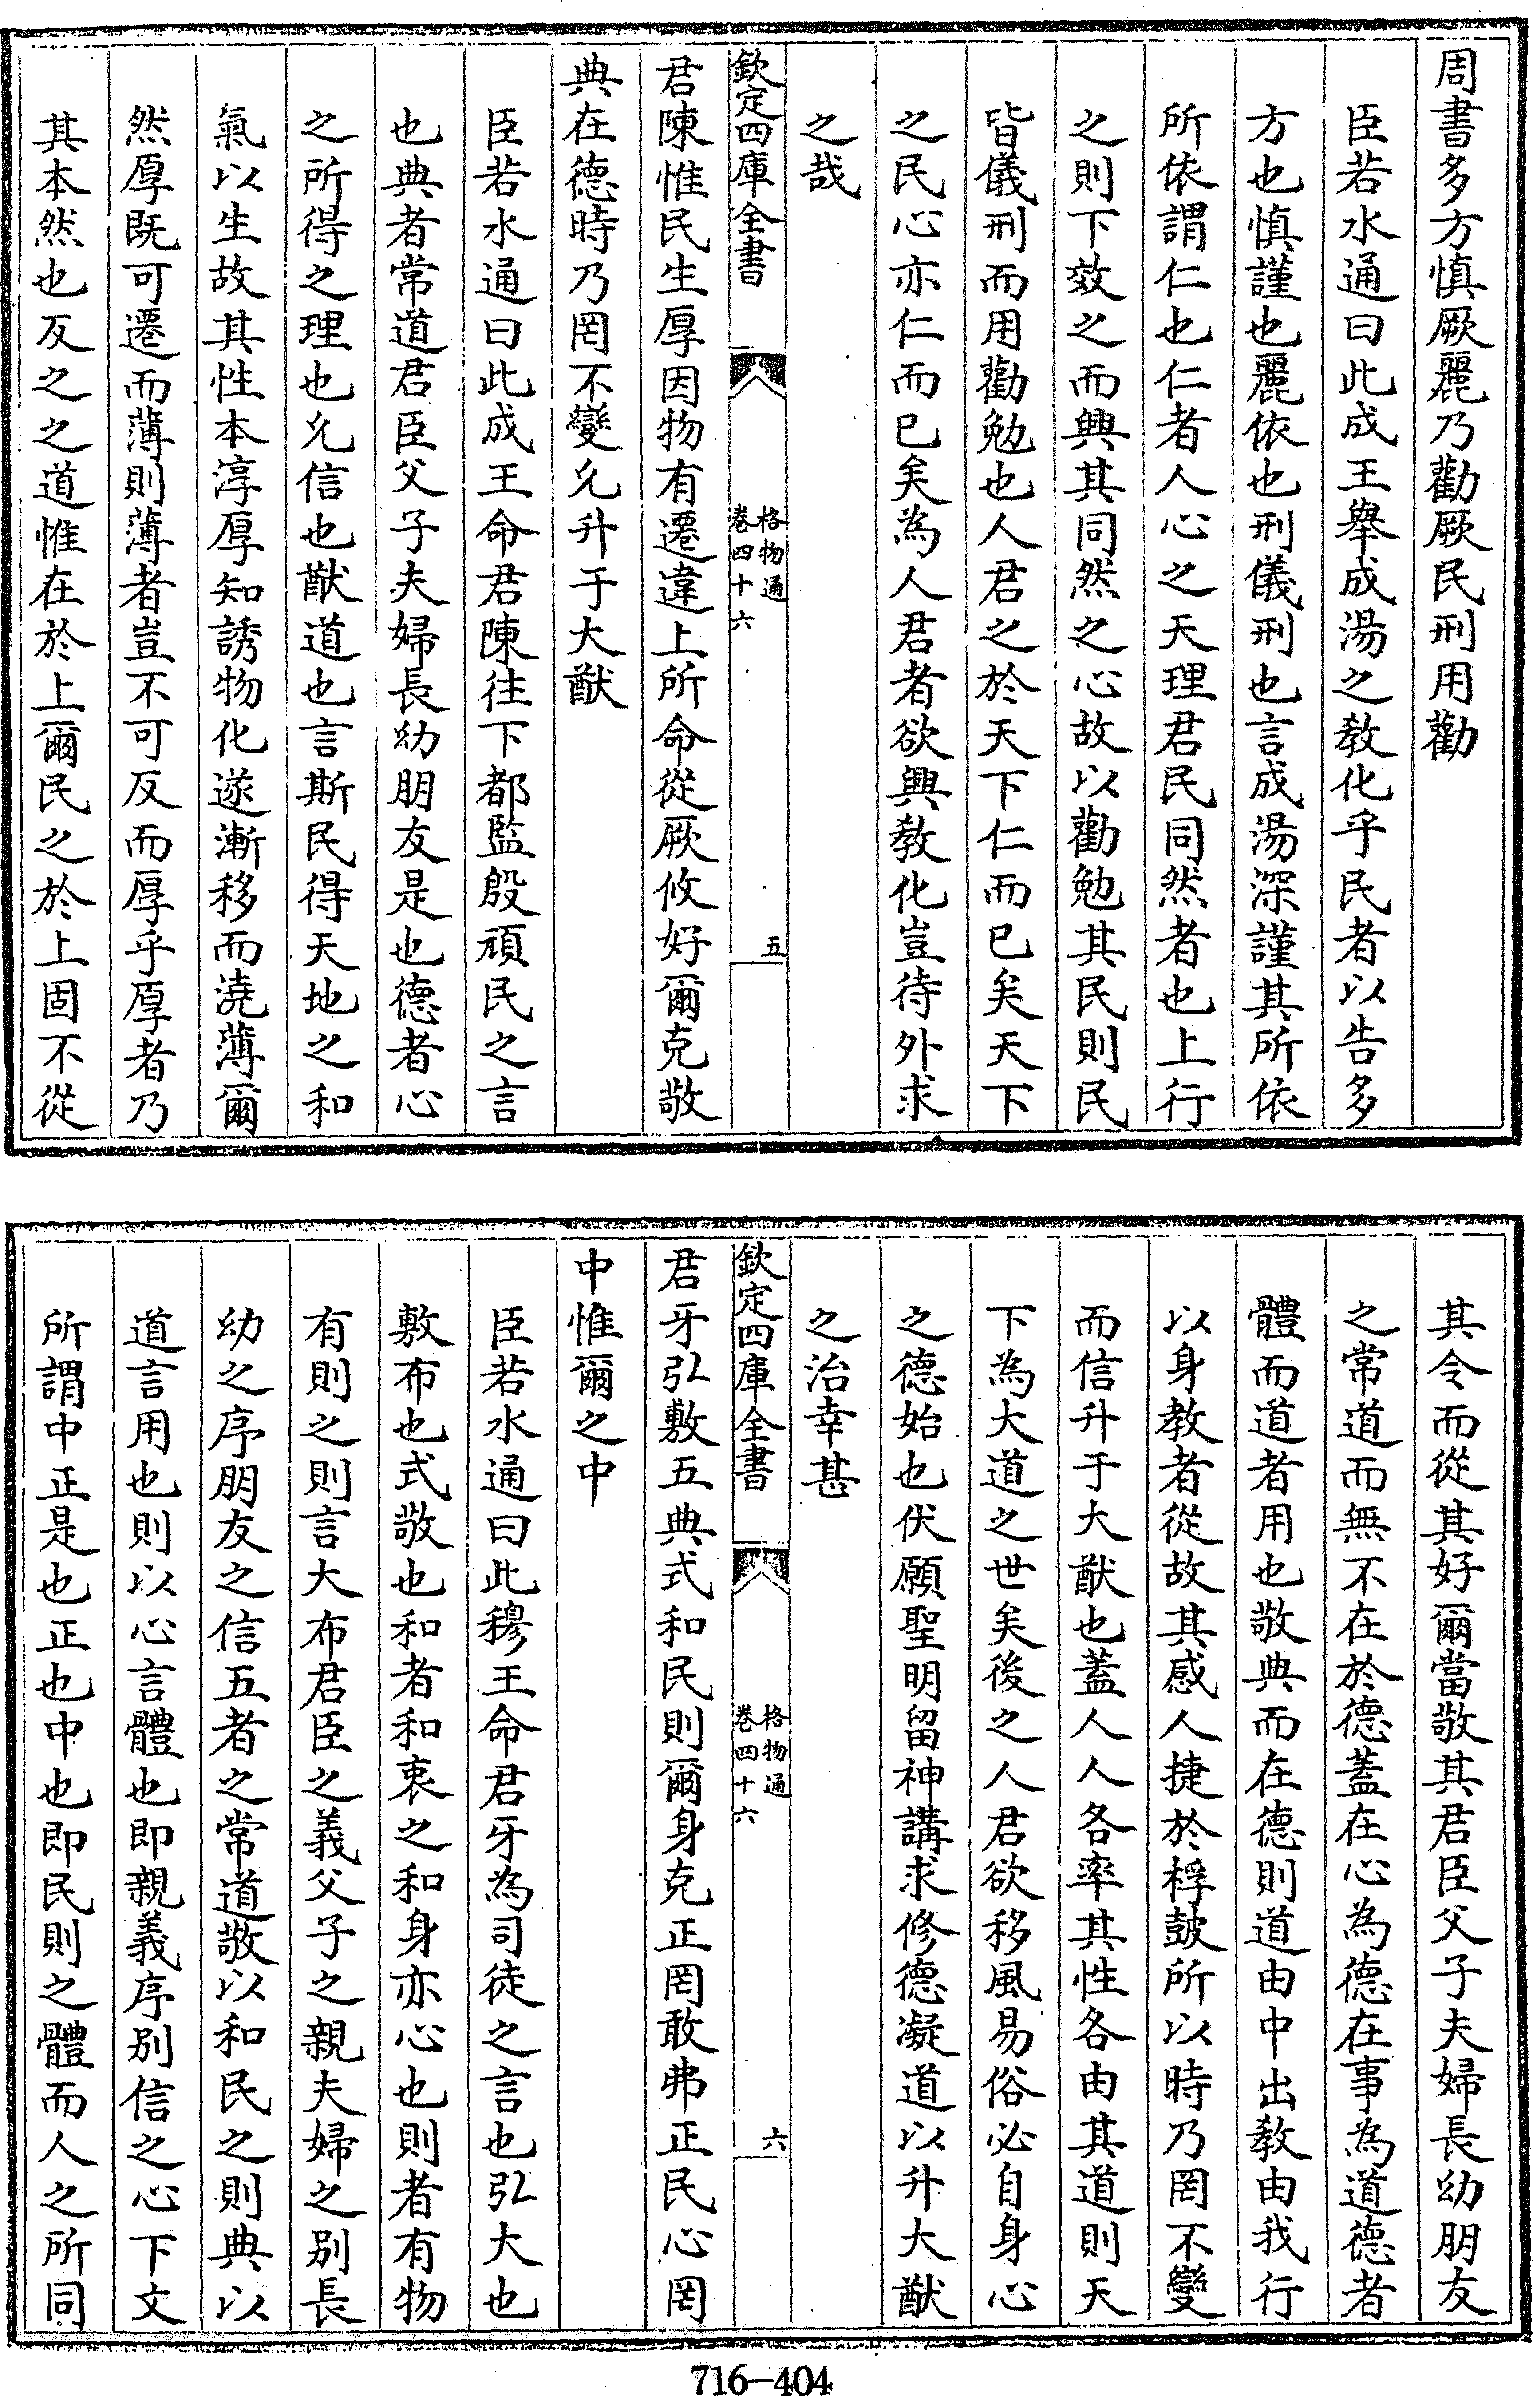 周書多方慎厥麗乃勸厥民刑用勸
臣若水通曰此成王舉成湯之教化乎民者以告多
方也慎謹也麗依也刑儀刑也言成湯深謹其所依
所依謂仁也仁者人心之天理君民同然者也上行
之則下效之而興其同然之心故以勸勉其民則民
皆儀刑而用勸勉也人君之於天下仁而已矣天下
之民心亦仁而已矣為人君者欲興教化豈待外求
之哉
欽定四庫全書
格物通
卷四十六
五
君陳惟民生厚因物有遷違上所命從厥攸好爾克敬
典在德時乃罔不變允升于大猷
臣若水通曰此成王命君陳往下都監殷頑民之言
也典者常道君臣父子夫婦長幼朋友是也德者心
之所得之理也允信也猷道也言斯民得天地之和
氣以生故其性本淳厚知誘物化遂漸移而澆薄爾
然厚既可遷而薄則薄者豈不可反而厚乎厚者乃
其本然也反之之道惟在於上爾民之於上固不從
其令而從其好爾當敬其君臣父子夫婦長幼朋友
之常道而無不在於德蓋在心為德在事為道德者
體而道者用也敬典而在德則道由中出教由我行
以身教者從故其感人捷於桴鼓所以時乃罔不變
而信升于大猷也蓋人人各率其性各由其道則天
下為大道之世矣後之人君欲移風易俗必自身心
之德始也伏願聖明留神講求修德凝道以升大猷
之治幸甚
欽定四庫全書
格物通
卷四十六
六
君牙弘敷五典式和民則爾身克正罔敢弗正民心罔
中惟爾之中
臣若水通曰此穆王命君牙為司徒之言也弘大也
敷布也式敬也和者和衷之和身亦心也則者有物
有則之則言大布君臣之義父子之親夫婦之別長
幼之序朋友之信五者之常道敬以和民之則典以
道言用也則以心言體也即親義序別信之心下文
所謂中正是也正也中也即民則之體而人之所同
716-404